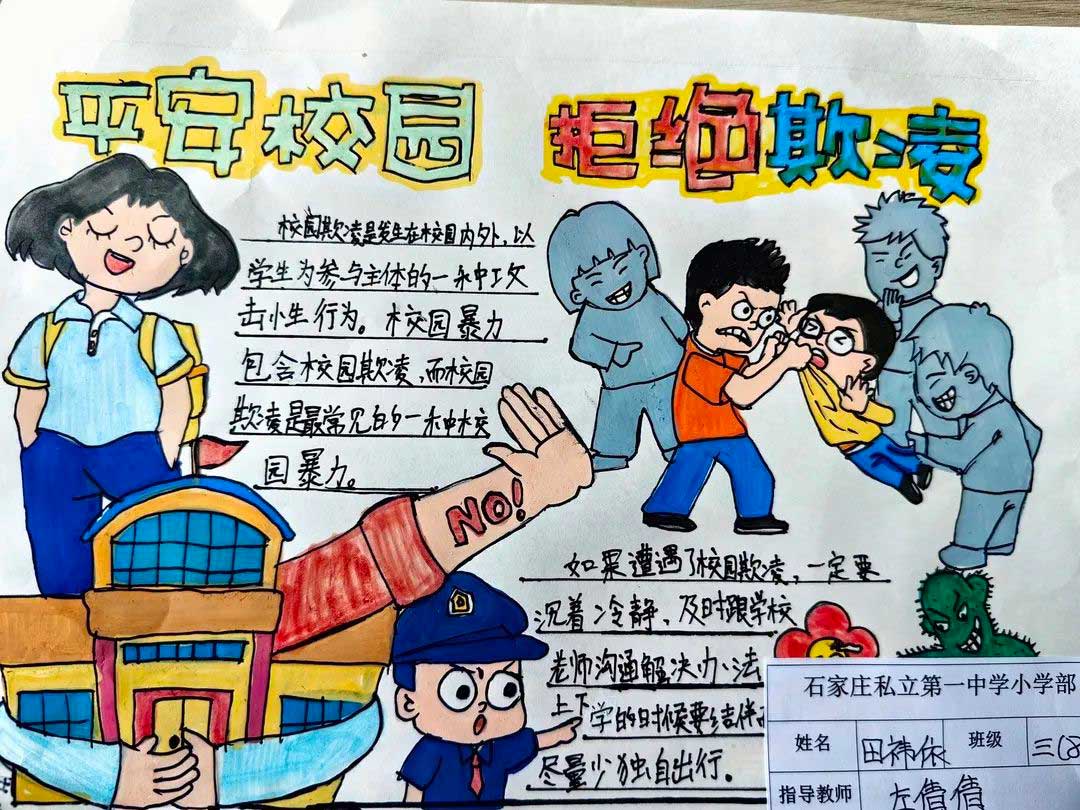 平安校园
拒绝欺凌
校园欺凌是发生在校园内外，以
学生为参与主体的一种攻
击小生行为。校园暴力
包含校园欺凌，而校园
欺凌是最常见的一种校
园暴力。
NO!
如果遭遇了校园欺凌，一定要
沉着冷静，及时跟学校
老师沟通解决办法
上下学的时候要结伴而
尽量少独自出行。
石家庄私立第一中学小学部
姓名 田祎依 班级 三(8
指导教师 倩倩